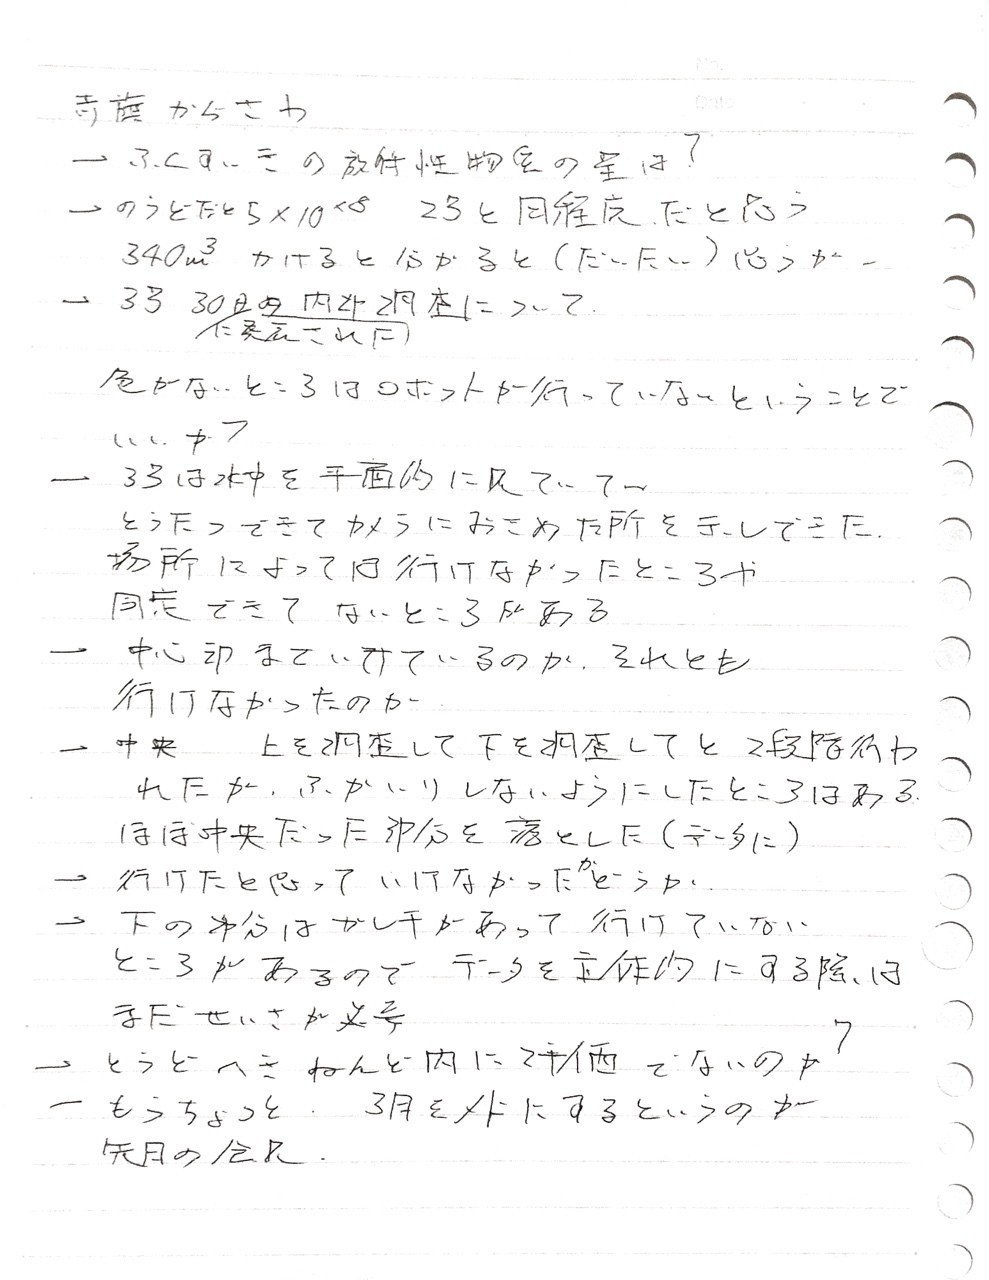 赤旗 からさわ
→ ふくすいきの放射性物質の量は?
→ のうどだと5×10^8 2号と同程度だと思う
340m³ かけると分かると(だいたい)思うが
→ 3号 30日の内部調査について
に発表された
色がないところはロボットが行っていないということで
いいか?
→ 3号は水中を平面的に見ていて〜
とうたつできてカメラにおさめた所を示してきた.
場所によっては行けなかったところや
同定できてないところがある
→ 中心部までいけているのか. それとも
行けなかったのか
→ 中央 上を調査して下を調査してと2段階行わ
れたが. ふかいりしないようにしたところはある.
ほぼ中央だった部分を落とした(データに)
→ 行けたと思っていけなかったかどうか.
→ 下の部分はガレキがあって行けていない
ところがあるので データを立体的にする際は
まだせいさが必要
→ とうどへき ねんど内に評価でないのか?
→ もうちょっと. 3月をメドにするというのが
先月の会見.